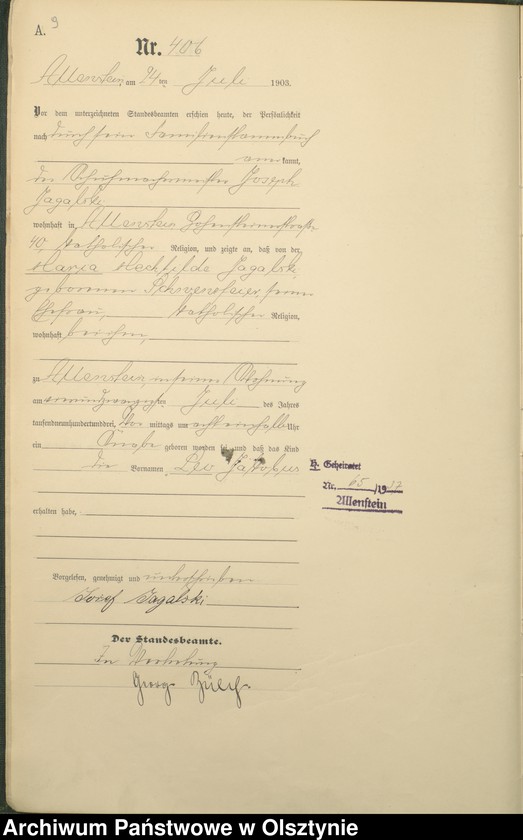 A. 9
Nr. 406
Allenstein, am 24ten Juli 1903.
Vor dem unterzeichneten Standesbeamten erschien heute, der Persönlichkeit
nach durch sein Familienstammbuch
anerkannt,
der Schuhmachermeister Joseph
Jagalski,
wohnhaft in Allenstein Hohensteinerstraße
40, katholischer Religion, und zeigte an, daß von der
Maria Mechtilde Jagalski
geborenen, seiner
Ehefrau, katholischer Religion,
wohnhaft bei ihm,
zu Allenstein in seiner Wohnung
am des Juli des Jahres
tausendneunhundertunddrei, Vor mittags um acht einhalb Uhr
ein Knabe geboren worden sei und daß das Kind
die Vornamen Leo Jakobus
erhalten habe.
Vorgelesen, genehmigt und unterschrieben
Josef Jagalski
Der Standesbeamte.
In Vertretung
Georg
H. Geheiratet
Nr. 65/1937
Allenstein
Archiwum Państwowe w Olsztynie